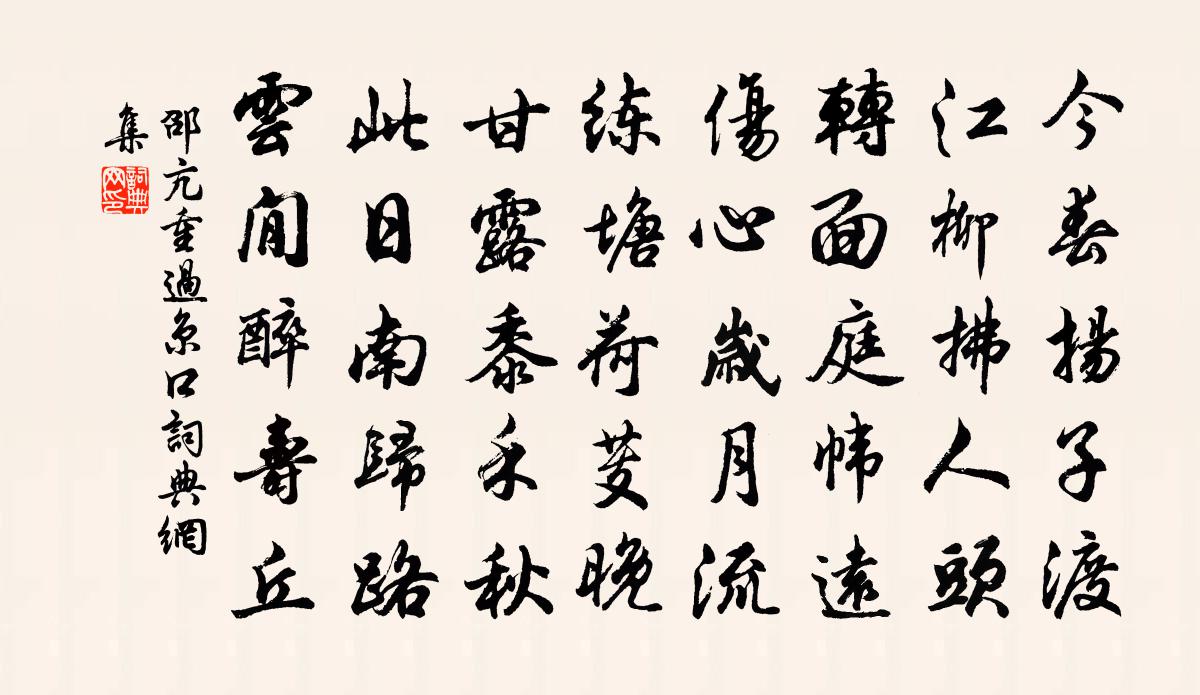 今春揚子渡
江柳拂人頭
轉面庭帷遠
傷心歲月流
练塘荷芰晚
甘露黍禾秋
此日南歸路
雲間醉壽丘
邵亢重過京口詞典網
集
詞典網印